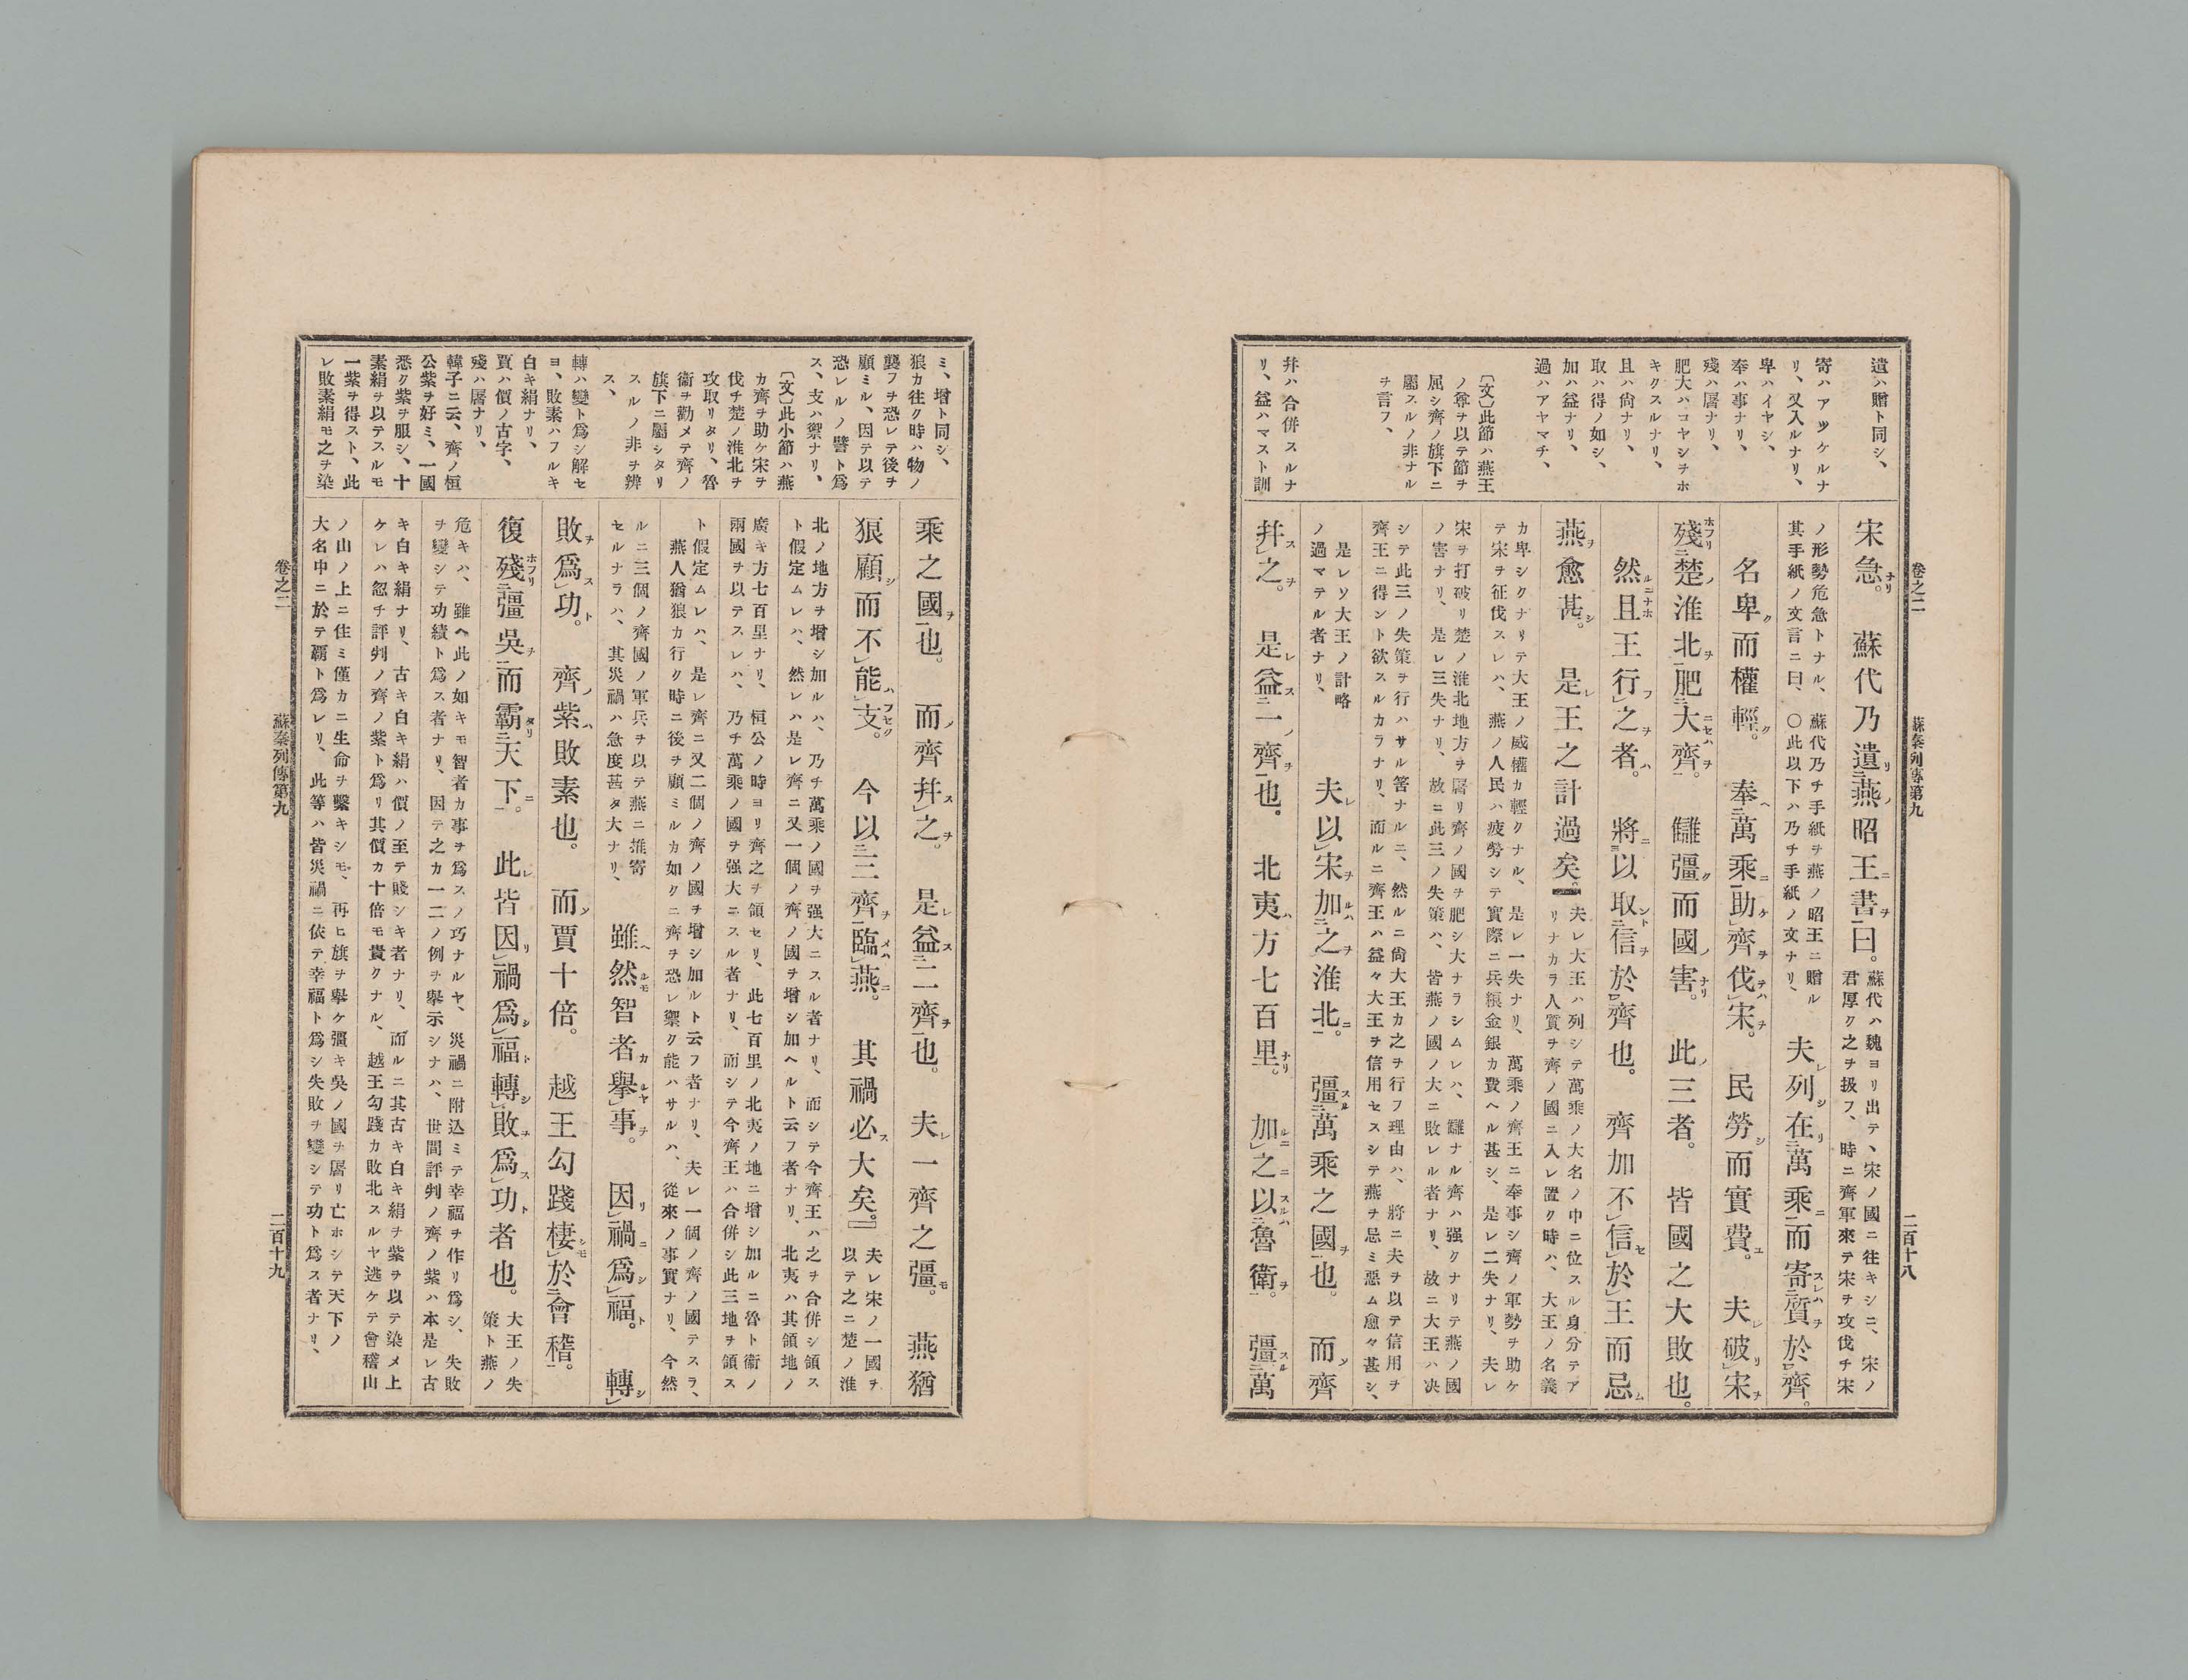 卷之二　蘇秦列傳第九　二百十八
遺ハ贈ト同シ、
寄ハアツケルナ
リ、又入ルナリ、
卑ハイヤシ、
奉ハ事ナリ、
殘ハ屠ナリ、
肥大ハコヤシヲホ
キクスルナリ、
且ハ尙ナリ、
取ハ得ノ如シ、
加ハ益ナリ、
過ハアヤマチ、
〔文〕此節ハ燕王
ノ尊ヲ以テ節ヲ
屈シ齊ノ旗下ニ
屬スルノ非ナル
ヲ言フ、
幷ハ合併スルナ
リ、益ハマスト訓
宋急。蘇代乃遺燕昭王書曰。
蘇代ハ魏ヨリ出テ、宋ノ國ニ往キシニ、宋ノ
君厚ク之ヲ扱フ、時ニ齊軍來テ宋ヲ攻伐チ宋
ノ形勢危急トナル、蘇代乃チ手紙ヲ燕ノ昭王ニ贈ル
其手紙ノ文言ニ曰、〇此以下ハ乃チ手紙ノ文ナリ、
夫列在萬乘而寄質於齊。
名卑而權輕。奉萬乘助齊伐宋。民勞而實費。夫破宋
殘楚淮北肥大齊。讎彊而國害。此三者。皆國之大敗也。
然且王行之者。將以取信於齊也。齊加不信於王而忌
燕愈甚。是王之計過矣。』
夫レ大王ハ列シテ萬乘ノ大名ノ中ニ位スル身分テア
リナカラ人質ヲ齊ノ國ニ入レ置ク時ハ、大王ノ名義
カ卑シクナリテ大王ノ威權カ輕クナル、是レ一失ナリ、萬乘ノ齊王ニ奉事シ齊ノ軍勢ヲ助ケ
テ宋ヲ征伐スレハ、燕ノ人民ハ疲勞シテ實際ニ兵粮金銀カ費ヘル甚シ、是レ二失ナリ、夫レ
宋ヲ打破リ楚ノ淮北地方ヲ屠リ齊ノ國ヲ肥シ大ナラシムレハ、讎ナル齊ハ强クナリテ燕ノ國
ノ害ナリ、是レ三失ナリ、故ニ此三ノ失策ハ、皆燕ノ國ノ大ニ敗レル者ナリ、故ニ大王ハ决
シテ此三ノ失策ヲ行ハサル筈ナルニ、然ルニ尙大王カ之ヲ行フ理由ハ、將ニ夫ヲ以テ信用ヲ
齊王ニ得ント欲スルカラナリ、而ルニ齊王ハ益々大王ヲ信用セスシテ燕ヲ忌ミ惡ム愈々甚シ、
是レソ大王ノ計略
ノ過マテル者ナリ、
夫以宋加之淮北。彊萬乘之國也。而齊
幷之。是益一齊也。北夷方七百里。加之以魯衛。彊萬
ミ、增ト同シ、
狼カ往ク時ハ物ノ
襲フヲ恐レテ後ヲ
顧ミル、因テ以テ
恐レルノ譬ト爲
ス、支ハ禦ナリ、
〔文〕此小節ハ燕
カ齊ヲ助ケ宋ヲ
伐チ楚ノ淮北ヲ
攻取リタリ、魯
衞ヲ勸メテ齊ノ
旗下ニ屬シタリ
スルノ非ヲ辨
ス、
轉ハ變ト爲シ解セ
ヨ、敗素ハフルキ
白キ絹ナリ、
賈ハ價ノ古字、
殘ハ屠ナリ、
韓子ニ云、齊ノ桓
公紫ヲ好ミ、一國
悉ク紫ヲ服シ、十
素絹ヲ以テスルモ
一紫ヲ得スト、此
レ敗素絹モ之ヲ染
乘之國也。而齊幷之。是益二齊也。夫一齊之彊。燕猶
狼顧而不能支。今以三齊臨燕。其禍必大矣。』
夫レ宋ノ一國ヲ
以テ之ニ楚ノ淮
北ノ地方ヲ增シ加ルハ、乃チ萬乘ノ國ヲ强大ニスル者ナリ、而シテ今齊王ハ之ヲ合併シ領ス
ト假定ムレハ、然レハ是レ齊ニ又一個ノ齊ノ國ヲ增シ加ヘルト云フ者ナリ、北夷ハ其領地ノ
廣キ方七百里ナリ、桓公ノ時ヨリ齊之ヲ領セリ、此七百里ノ北夷ノ地ニ增シ加ルニ魯ト衞ノ
兩國ヲ以テスレハ、乃チ萬乘ノ國ヲ强大ニスル者ナリ、而シテ今齊王ハ合併シ此三地ヲ領ス
ト假定ムレハ、是レ齊ニ又二個ノ齊ノ國ヲ增シ加ルト云フ者ナリ、夫レ一個ノ齊ノ國テスラ、
燕人猶狼カ行ク時ニ後ヲ顧ミルカ如クニ齊ヲ恐レ禦ク能ハサルハ、從來ノ事實ナリ、今然
ルニ三個ノ齊國ノ軍兵ヲ以テ燕ニ推寄
セルナラハ、其災禍ハ急度甚タ大ナリ、
雖然智者擧事。因禍爲福。轉
敗爲功。齊紫敗素也。而賈十倍。越王勾踐棲於會稽。
復殘彊吳而霸天下。此皆因禍爲福轉敗爲功者也。
大王ノ失
策ト燕ノ
危キハ、雖ヘ此ノ如キモ智者カ事ヲ爲スノ巧ナルヤ、災禍ニ附込ミテ幸福ヲ作リ爲シ、失敗
ヲ變シテ功績ト爲ス者ナリ、因テ之カ一二ノ例ヲ擧示シナハ、世間評判ノ齊ノ紫ハ本是レ古
キ白キ絹ナリ、古キ白キ絹ハ價ノ至テ賤シキ者ナリ、而ルニ其古キ白キ絹ヲ紫ヲ以テ染メ上
ケレハ忽チ評判ノ齊ノ紫ト爲リ其價カ十倍モ貴クナル、越王勾踐カ敗北スルヤ逃ケテ會稽山
ノ山ノ上ニ住ミ僅カニ生命ヲ繫キシモ、再ヒ旗ヲ擧ケ彊キ吳ノ國ヲ屠リ亡ホシテ天下ノ
大名中ニ於テ霸ト爲レリ、此等ハ皆災禍ニ依テ幸福ト爲シ失敗ヲ變シテ功ト爲ス者ナリ、
卷之二　蘇秦列傳第九　二百十九